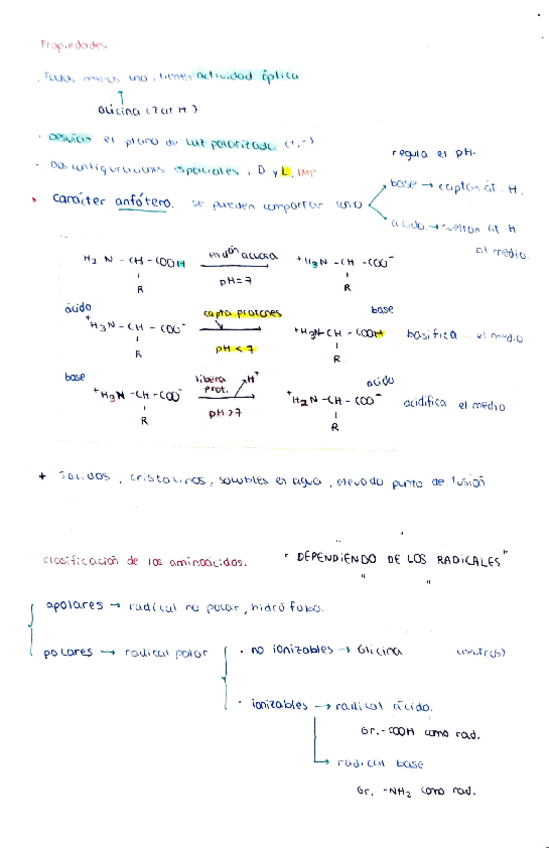 Propiedades
. Todos menos uno, tienen actividad óptica
Glicina (2 at H)
· desvían el plano de luz polarizada (+,-)
· Dos configuraciones espaciales, D y L, IMP
regula el pH.
* Carácter anfótero. se pueden comportar como
base → captan át. H.
ácido → sueltan át H
al medio.
H2 N - CH - COOH en dón acuosa pH=7 +H3N - CH - COO-
R R
ácido capta protones base
+H3N - CH - COO- pH < 7 +H3N - CH - COOH basifica el medio
R R
base libera prot. H+ ácido
+H3N - CH - COO- pH > 7 +H2N - CH - COO- acidifica el medio
R R
+ Sólidos, cristalinos, solubles en agua, elevado punto de fusión
clasificación de los aminoácidos. "DEPENDIENDO DE LOS RADICALES"
apolares → radical no polar, hidrófobo.
polares → radical polar · no ionizables → Glicina (neutros)
· ionizables → radical ácido.
Gr. -COOH como rad.
radical base
Gr. -NH2 como rad.